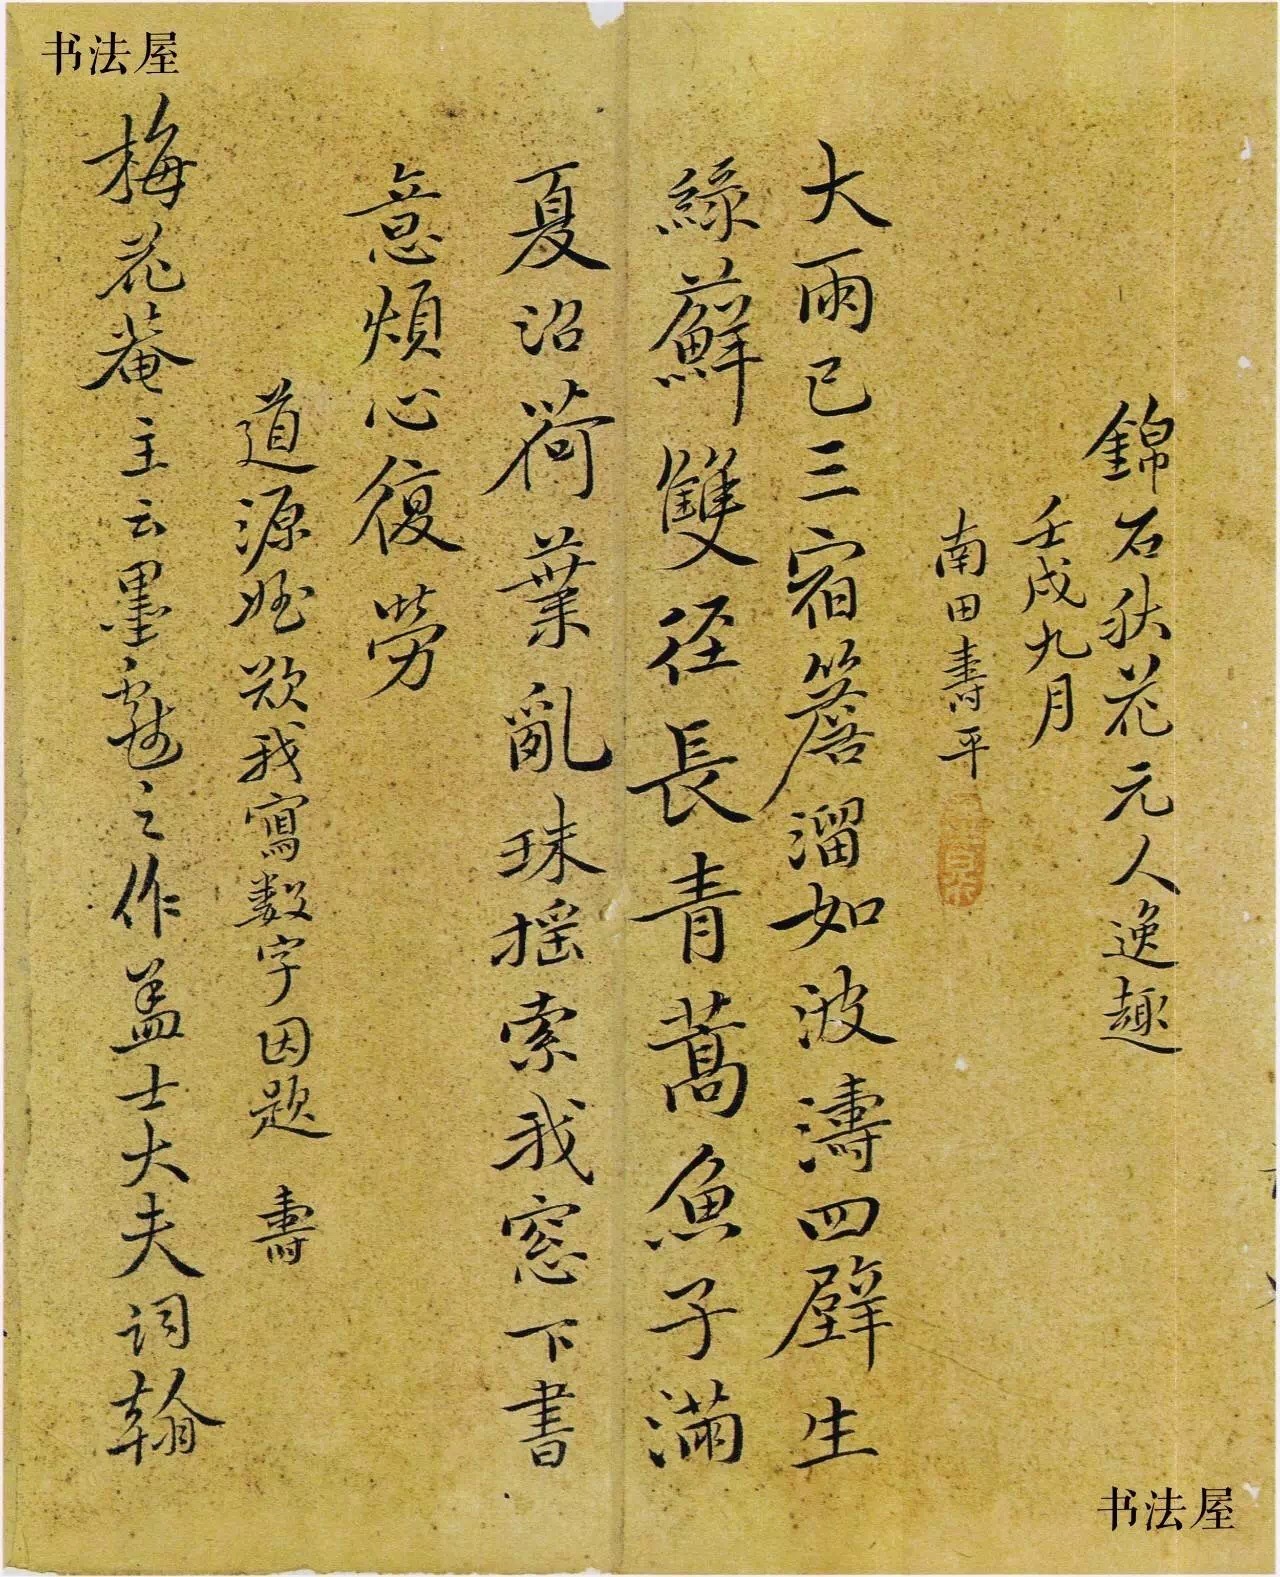 书法屋
錦石秋花元人逸趣
壬戌九月
南田壽平
大雨已三宿簷溜如波濤四壁生
綠蘚雙徑長青蒿魚子滿
夏沼荷葉亂珠搖索我窓下書
意煩心復勞
道源姪欲我寫數字因題 壽
梅花菴主云墨戲之作盖士大夫詞翰
书法屋